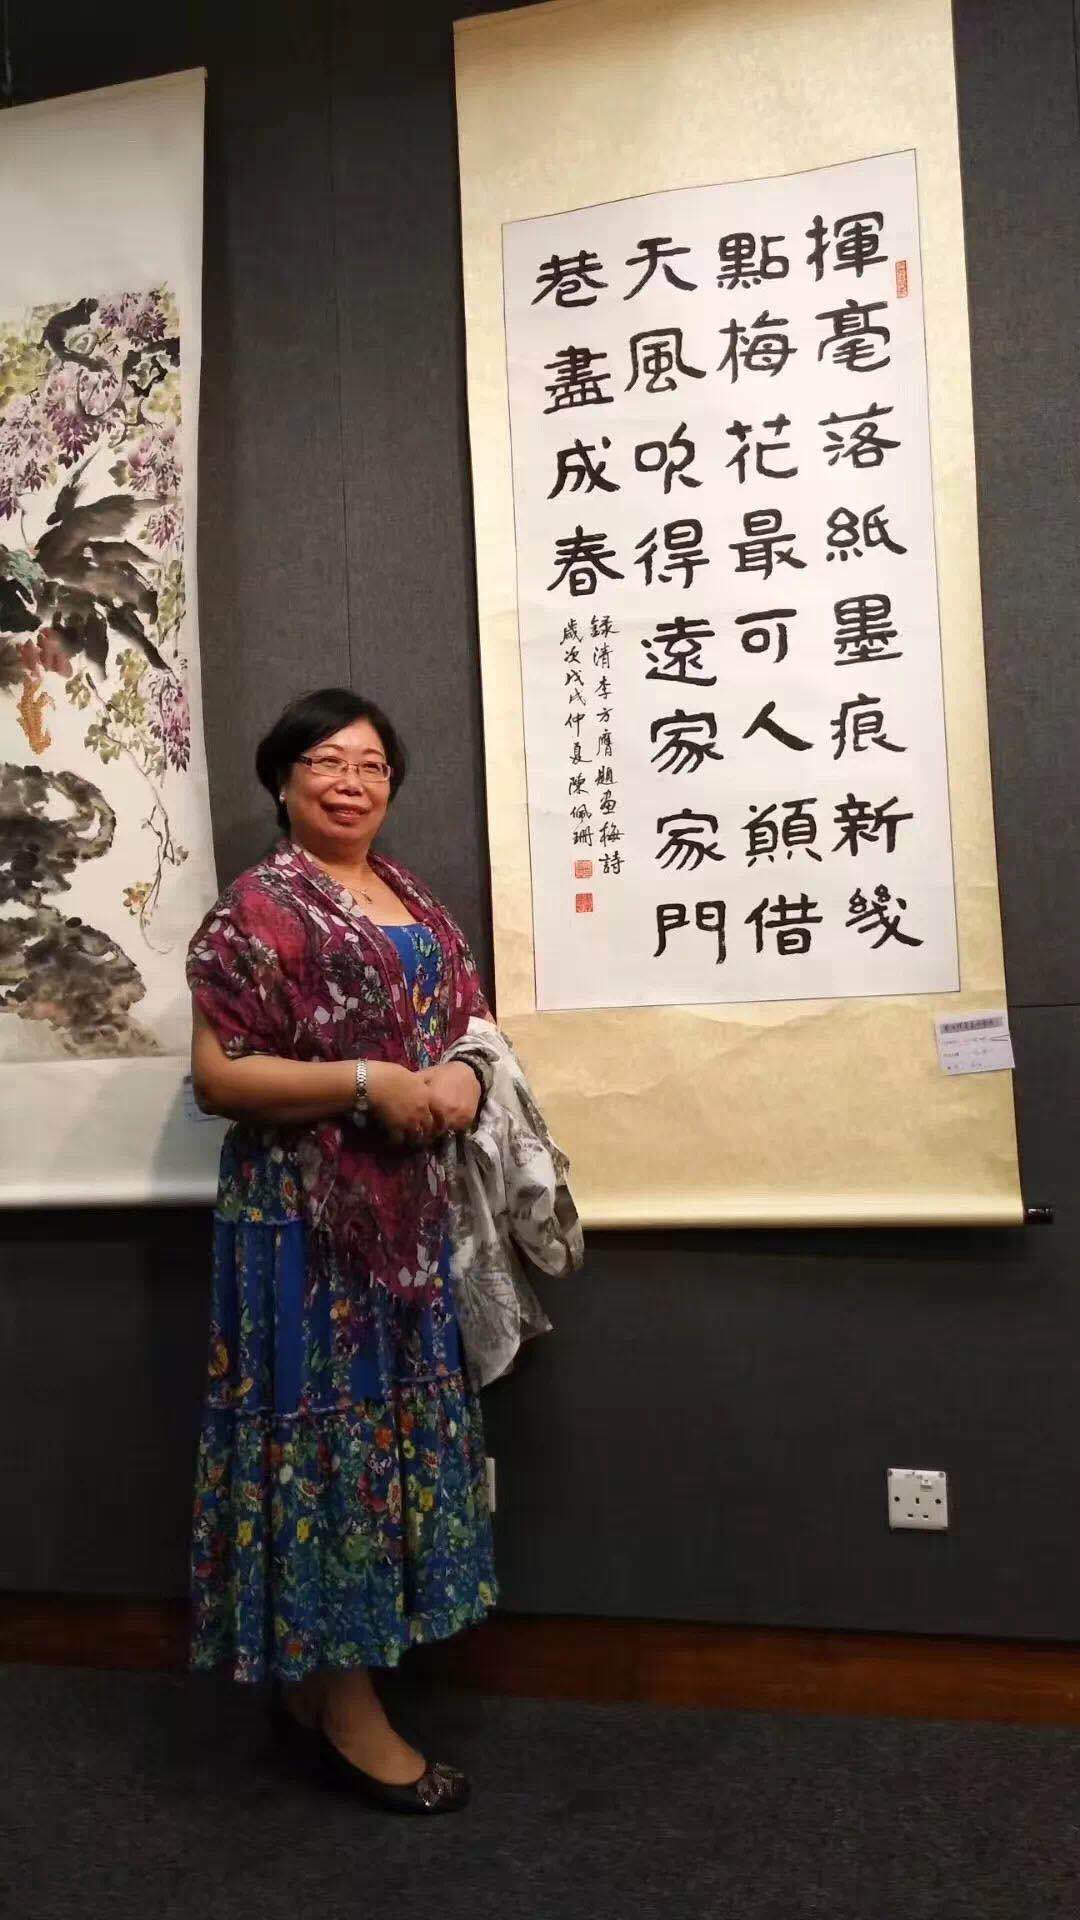 揮毫落紙墨痕新幾
點梅花最可人顛借
天風吹得遠家家門
巷盡成春
録清李方膺題画梅詩
歲次戊戌仲夏陳佩珊